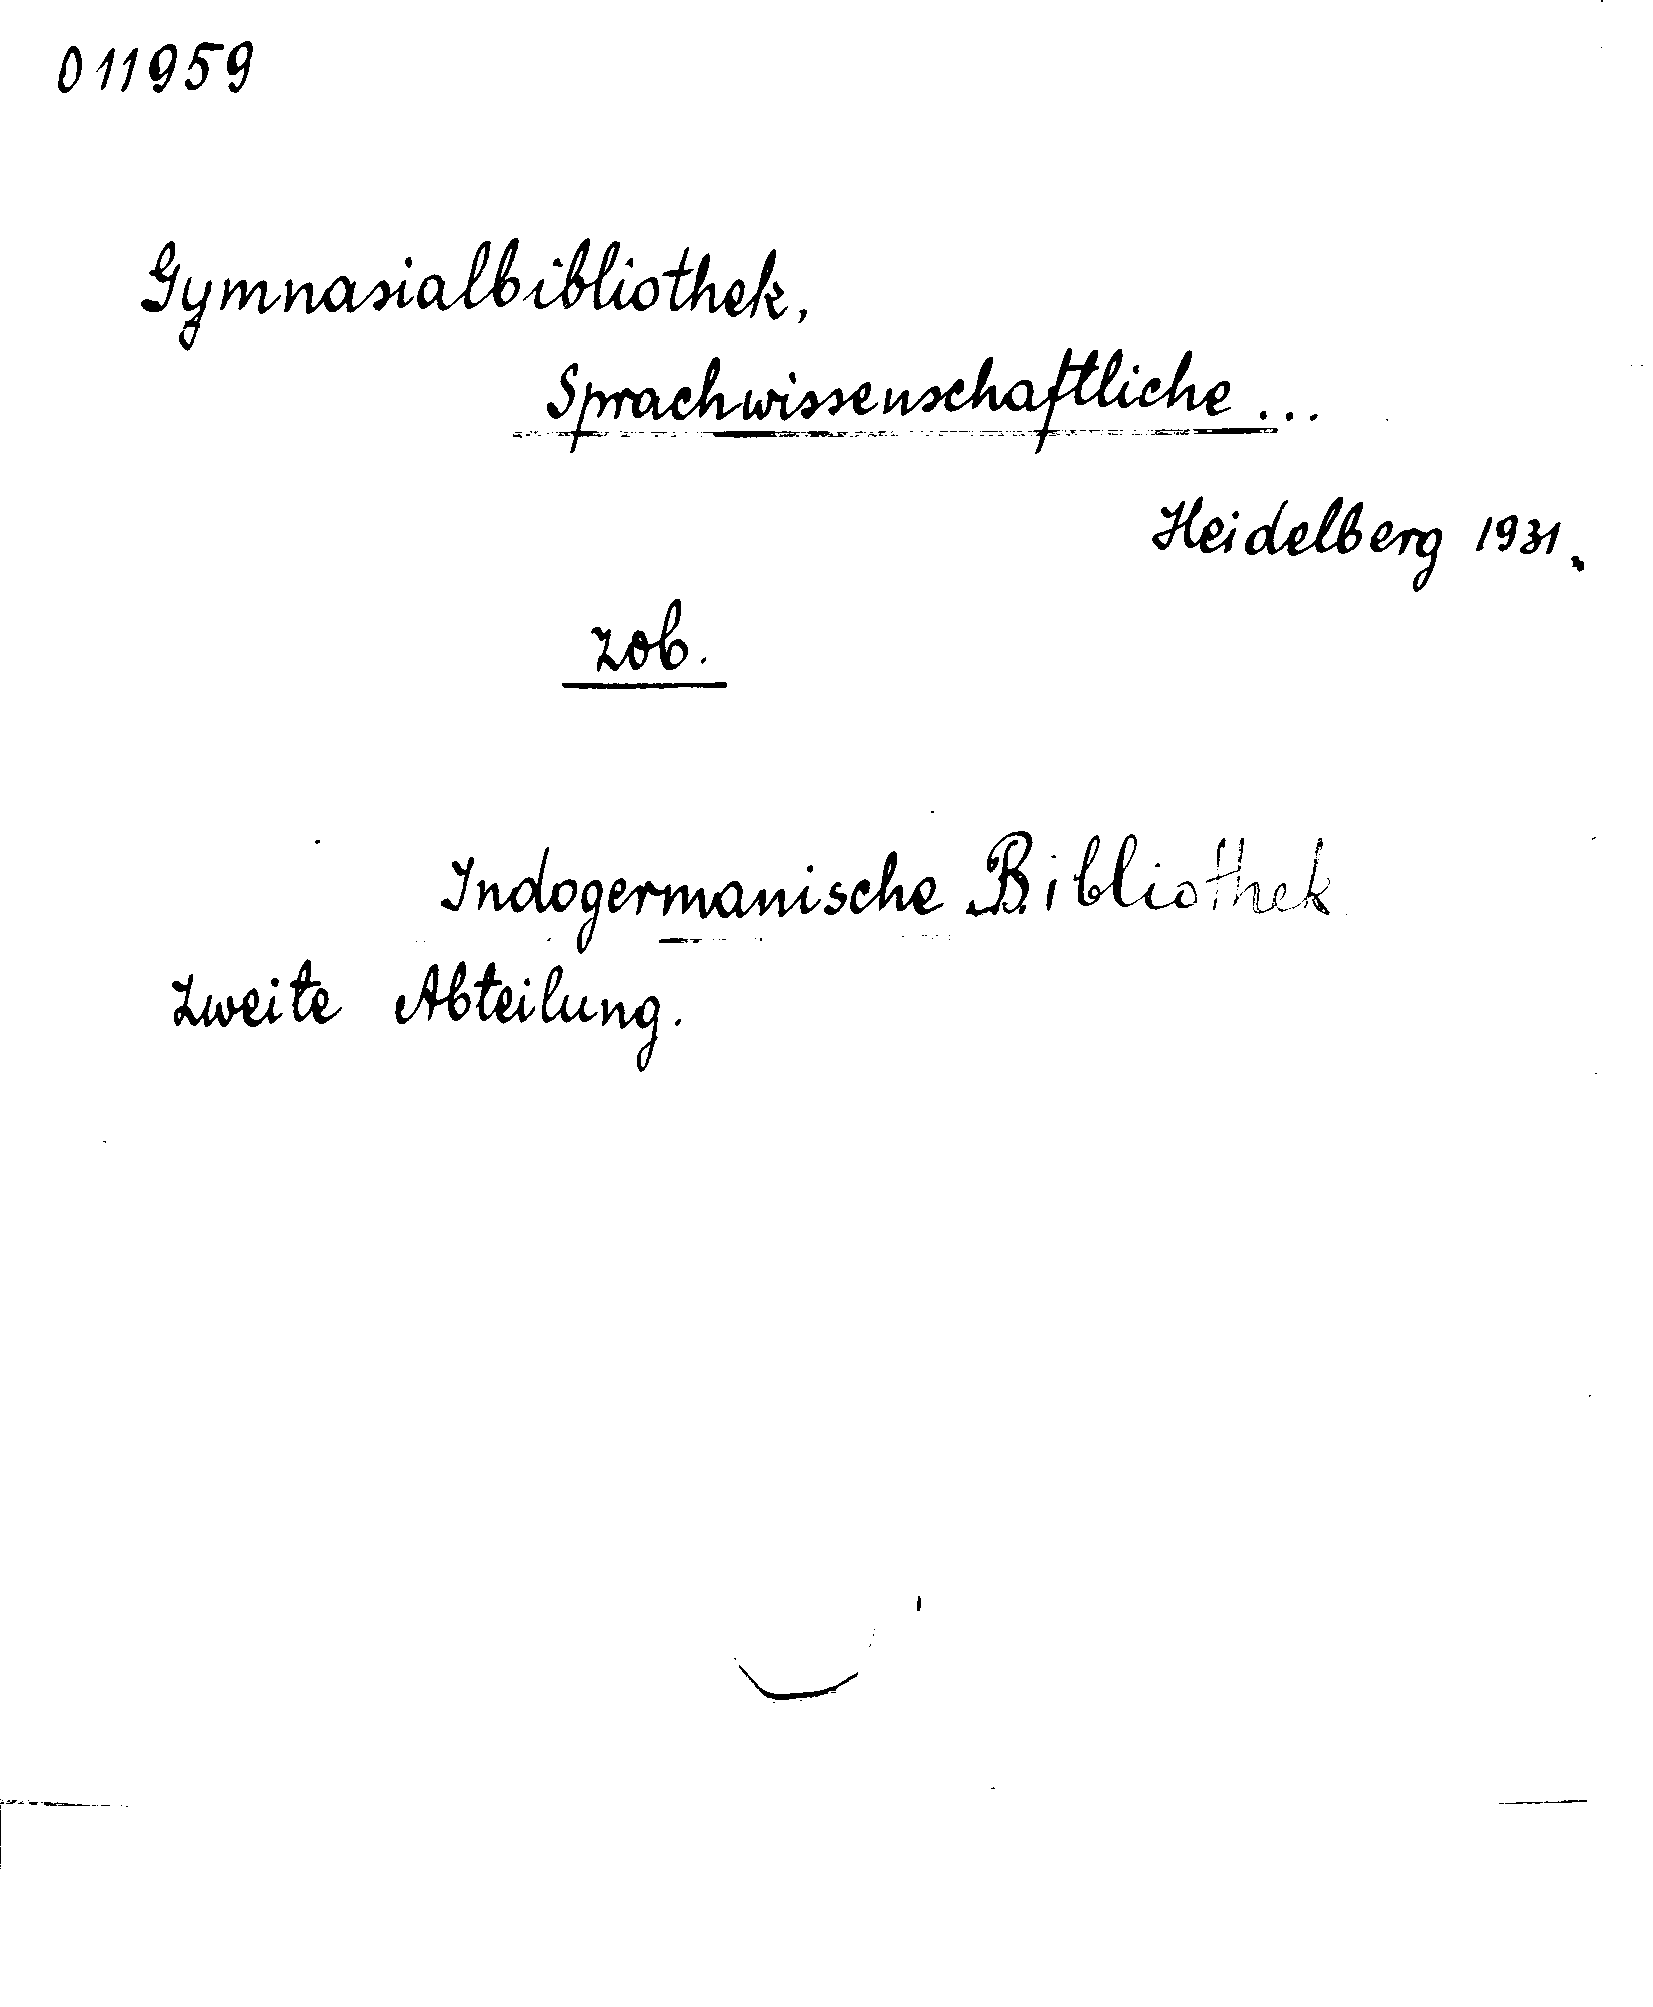 011959
Gymnasialbibliothek,
Sprachwissenschaftliche...
Heidelberg 1931.
zob.
Indogermanische Bibliothek
Zweite Abteilung.